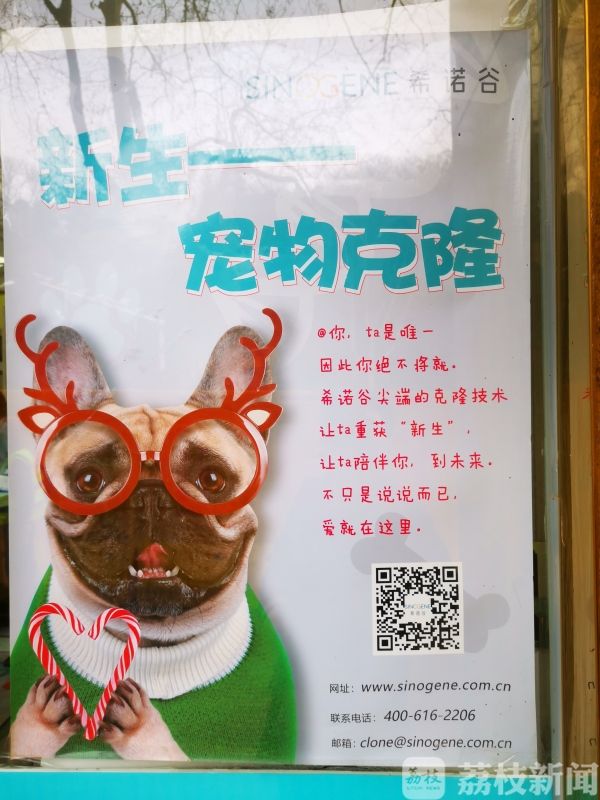 SINOGENE 希诺谷
新生——
宠物克隆
@你，ta是唯一
因此你绝不将就。
希诺谷尖端的克隆技术
让ta重获“新生”，
让ta陪伴你，到未来。
不只是说说而已，
爱就在这里。
SINOGENE
希诺谷
网址：www.sinogene.com.cn
联系电话：400-616-2206
邮箱：clone@sinogene.com.cn
荔枝 荔枝新闻